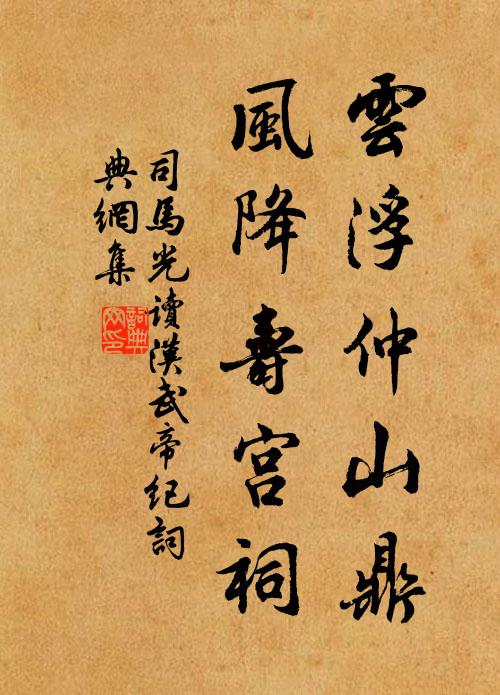 雲浮仲山鼎
風降壽宮祠
司馬光讀漢武帝紀詞
典網集
詞典網印